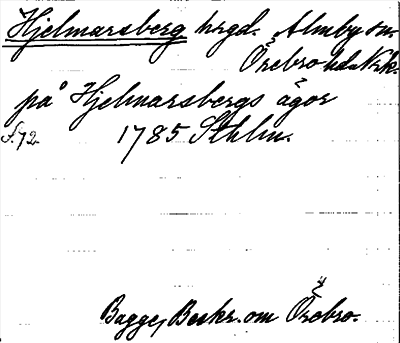 Hjelmarsberg hrgd. Almby sn.
Örebro hd. Nrk.
på Hjelmarsbergs ägor
s. 72. 1785 Sthlm.
Bagge, Beskr. om Örebro.